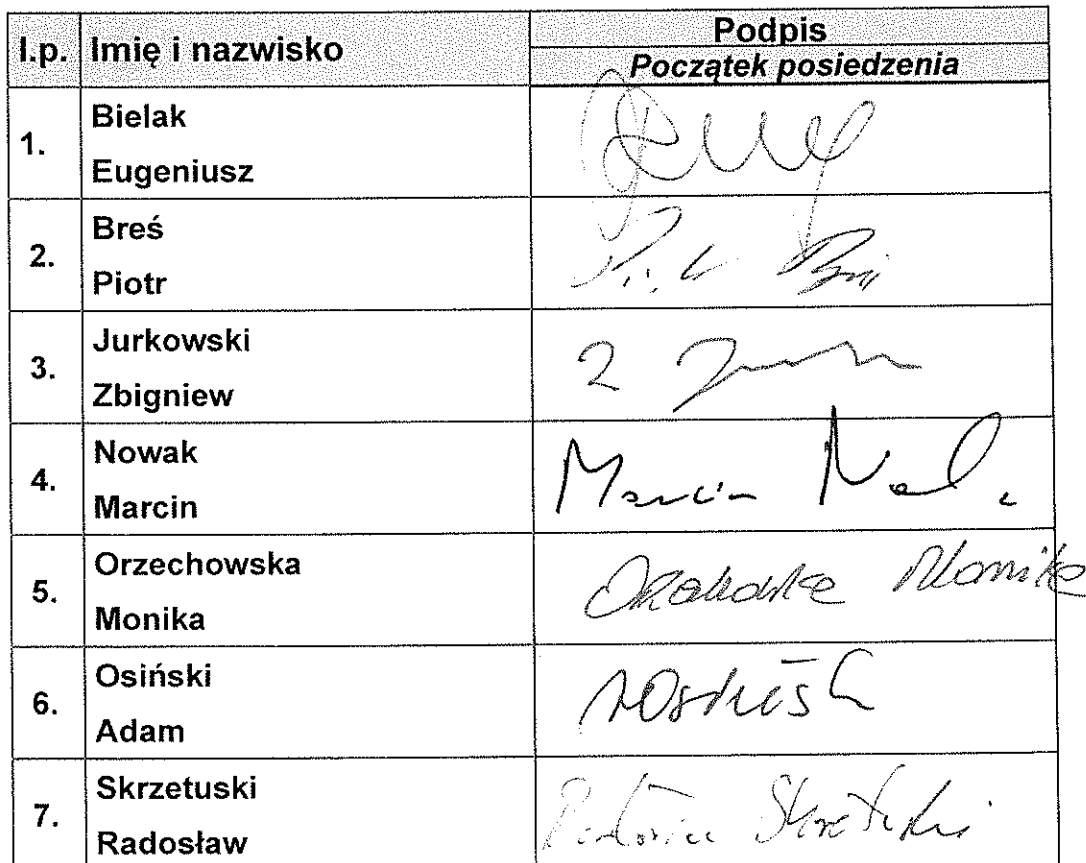 l.p. Imię i nazwisko Podpis
Początek posiedzenia
1. Bielak
Eugeniusz
2. Breś
Piotr
3. Jurkowski
Zbigniew
4. Nowak
Marcin
Marcin
5. Orzechowska
Monika
Monika
6. Osiński
Adam
7. Skrzetuski
Radosław
Skrzetuski